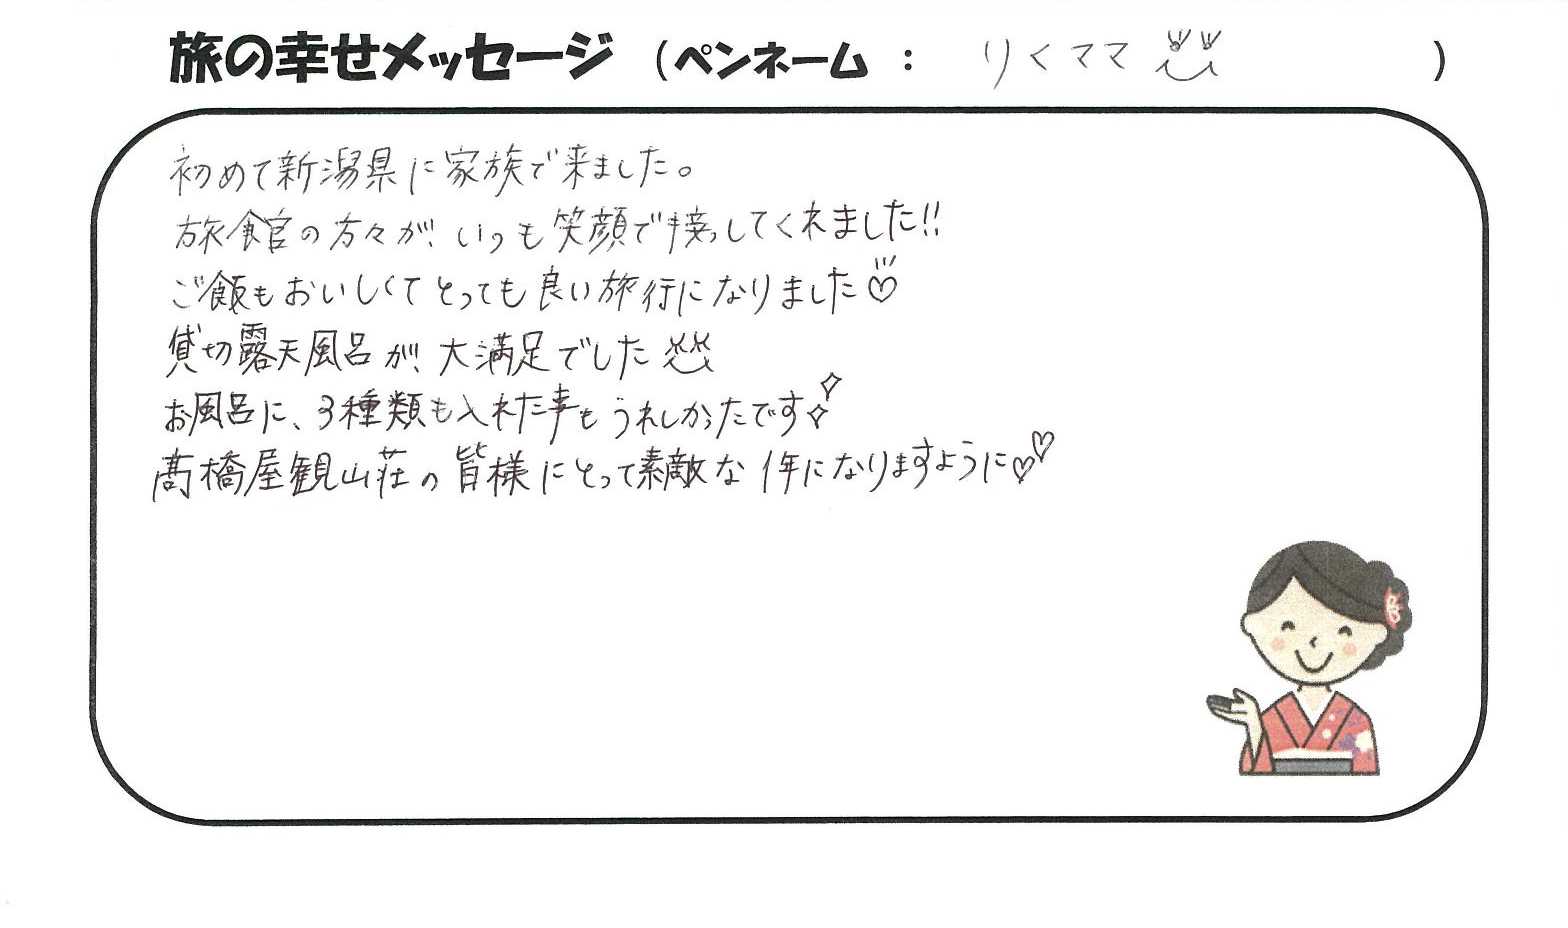 旅の幸せメッセージ (ペンネーム : りくママ )
初めて新潟県に家族で来ました。
旅館の方々が、いつも笑顔で接してくれました!!
ご飯もおいしくてとっても良い旅行になりました♡
貸切露天風呂が、大満足でした
お風呂に、3種類も入れた事もうれしかったです
髙橋屋観山荘の皆様にとって素敵な1年になりますように♡♡